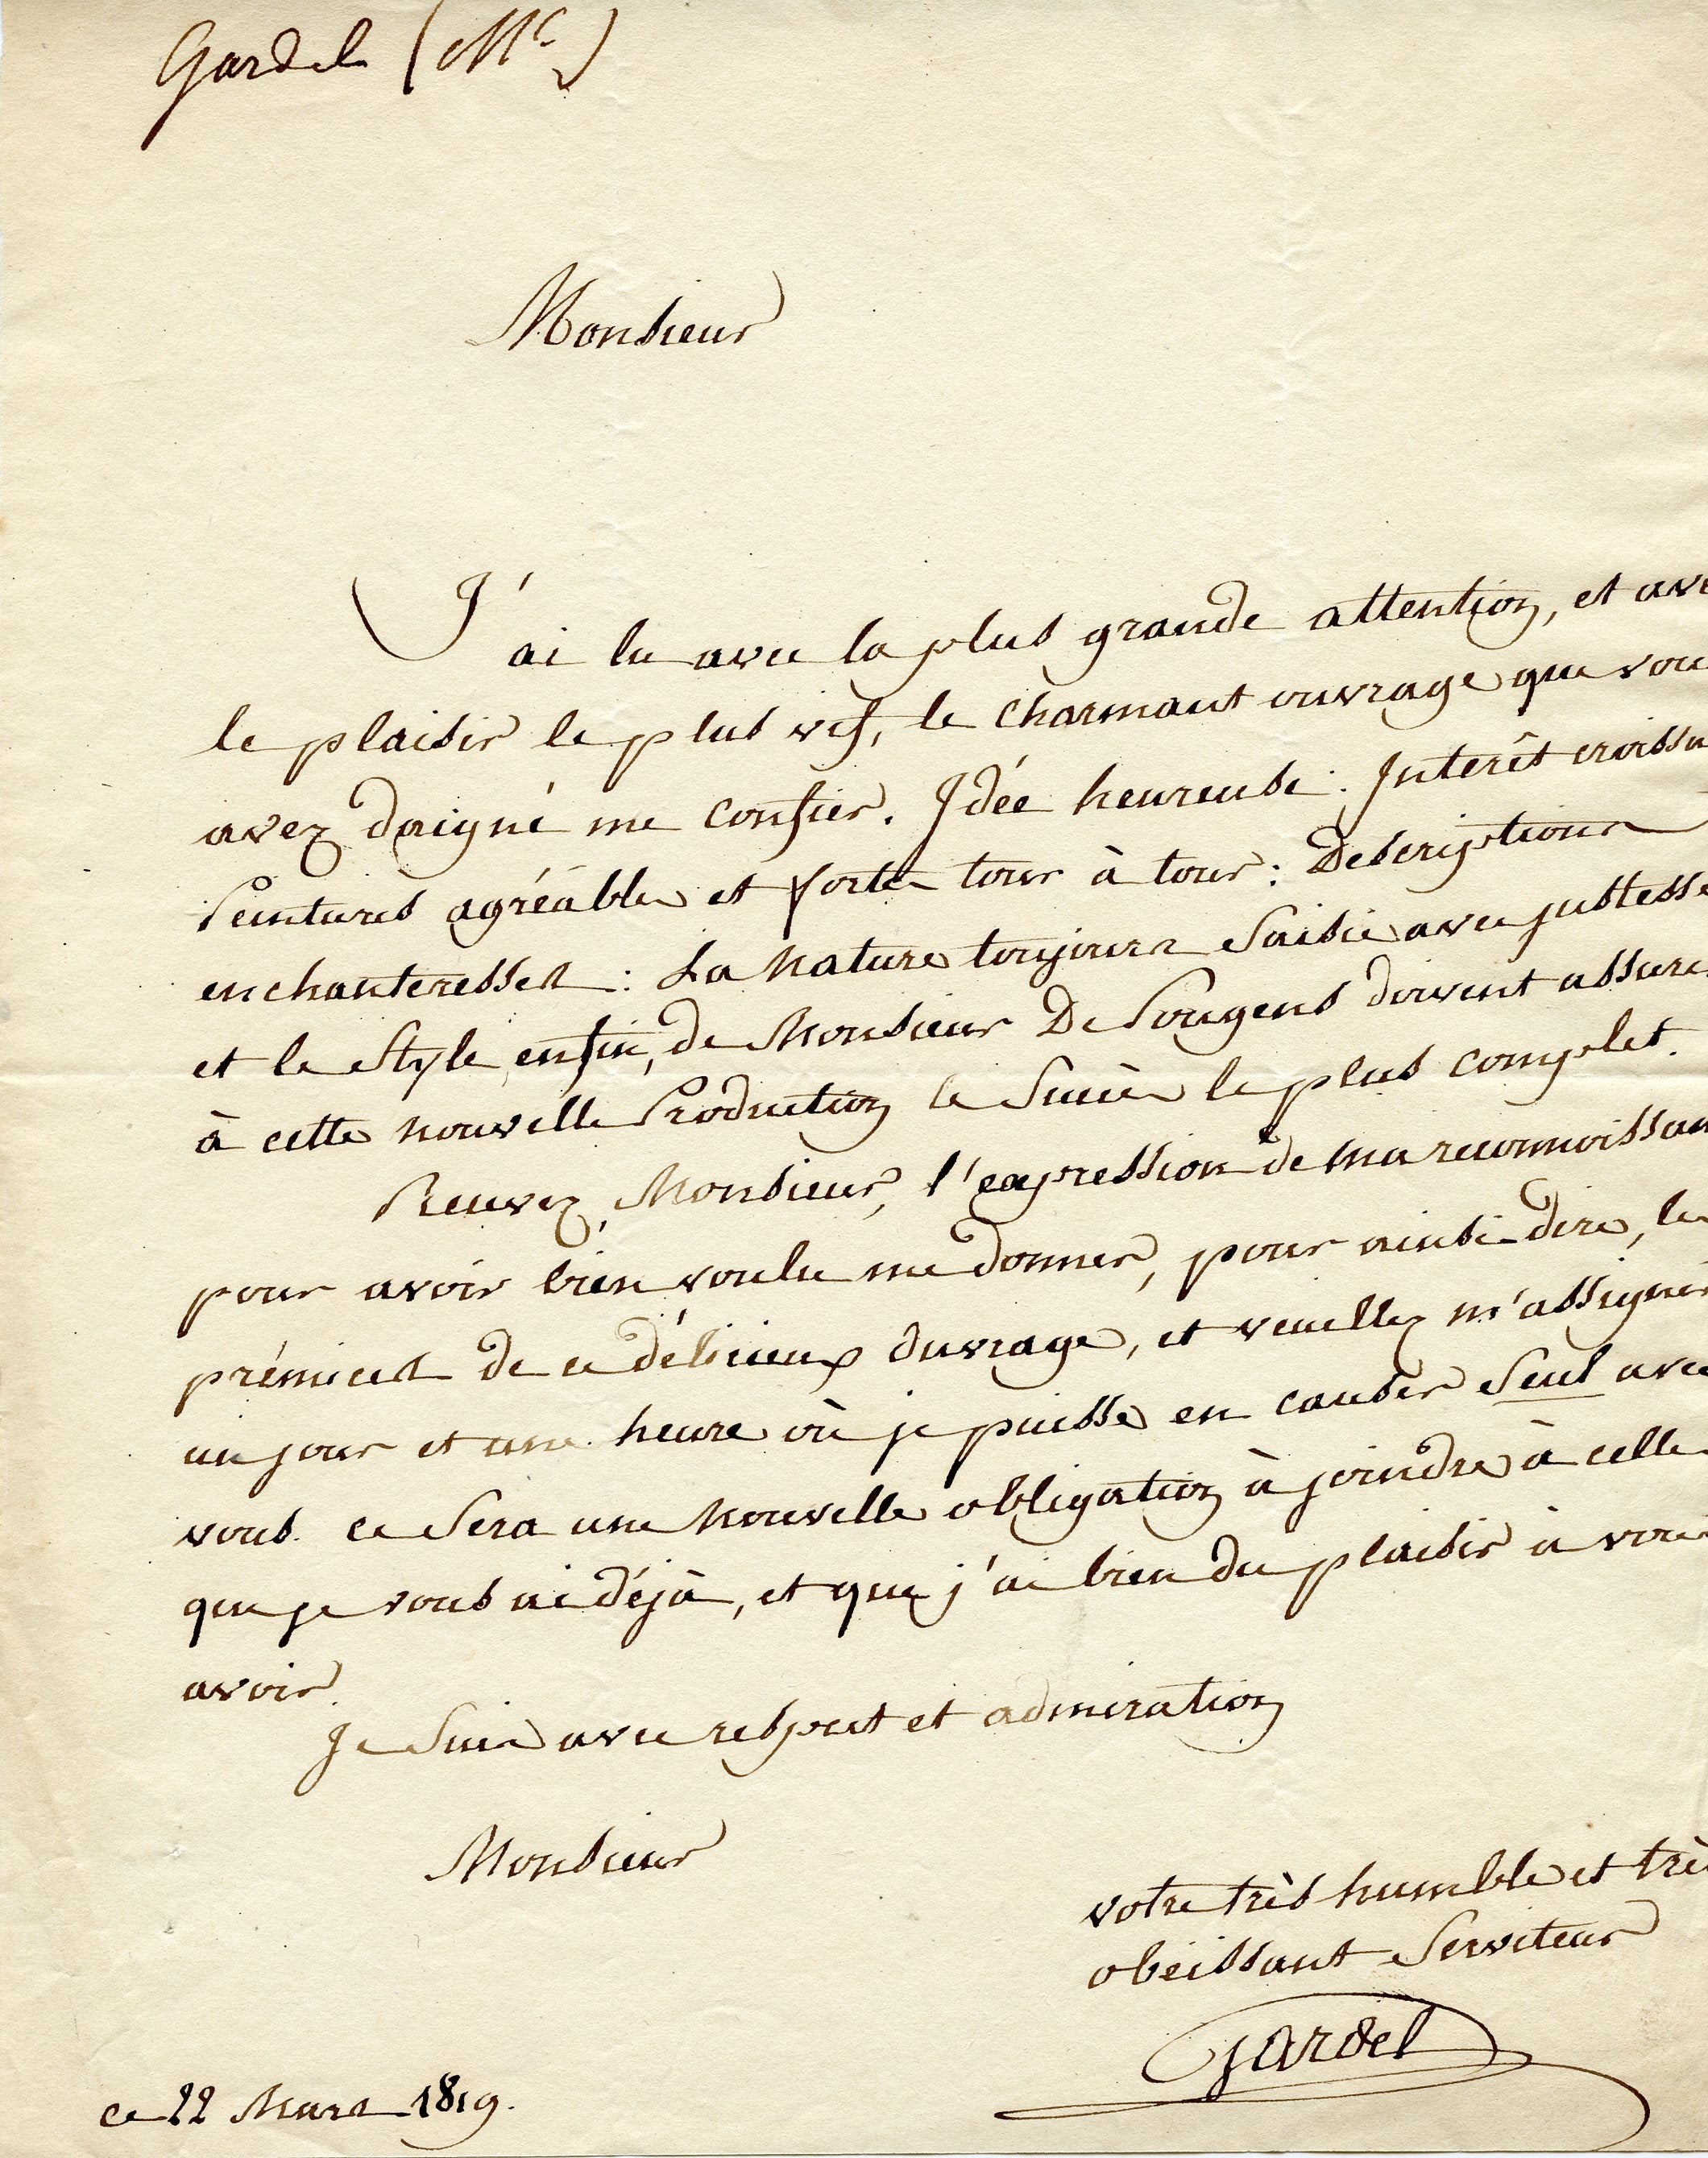 Gardel (Mr)
Monsieur
J'ai lu avec la plus grande attention, et ave
le plaisir le plus vif, le charmant ouvrage que vou
avez daigné me confier. Idée heureuse : Interêt croissa
Peintures agréables et fortes tour à tour : Descriptions
enchanteresses : La Nature toujours Saisie avec justesse
et le Style, enfin, de Monsieur De Pougens doivent assurer
à cette nouvelle Production le Succès le plus complet.
Recevez, Monsieur, l'expression de ma reconnoissan
pour avoir bien voulu me donner, pour ainsi dire, les
prémices de ce délicieux Ouvrage, et veuillez m'assigner
un jour et une heure où je puisse en causer Seul avec
vous. ce Sera une Nouvelle obligation à joindre à celle
que je vous ai déjà, et que j'ai bien du plaisir à vou
avoir.
Je Suis avec respect et admiration
Monsieur
votre très humble et trè
obéissant Serviteur
Gardel
ce 22 Mars 1819.